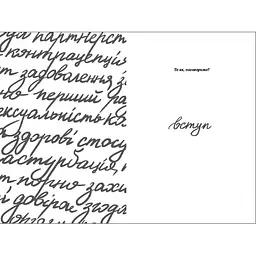 партнерст
контрацепція
т задоволення з
но перший ра
ексуальність ко
здорові стосу
астурбація,
т порно захи
й довіряє згода
То як, поговоримо?
вступ